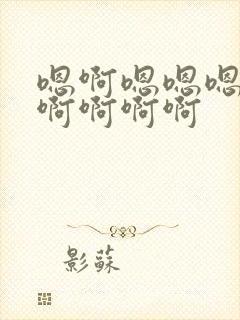 嗯啊嗯嗯嗯
啊啊啊啊
影蘇